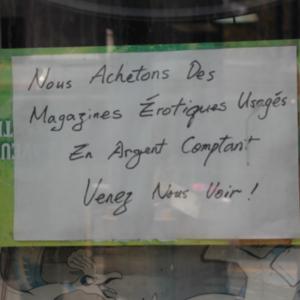 Nous Achetons Des
Magazines Érotiques Usagés
En Argent Comptant
Venez Nous Voir !